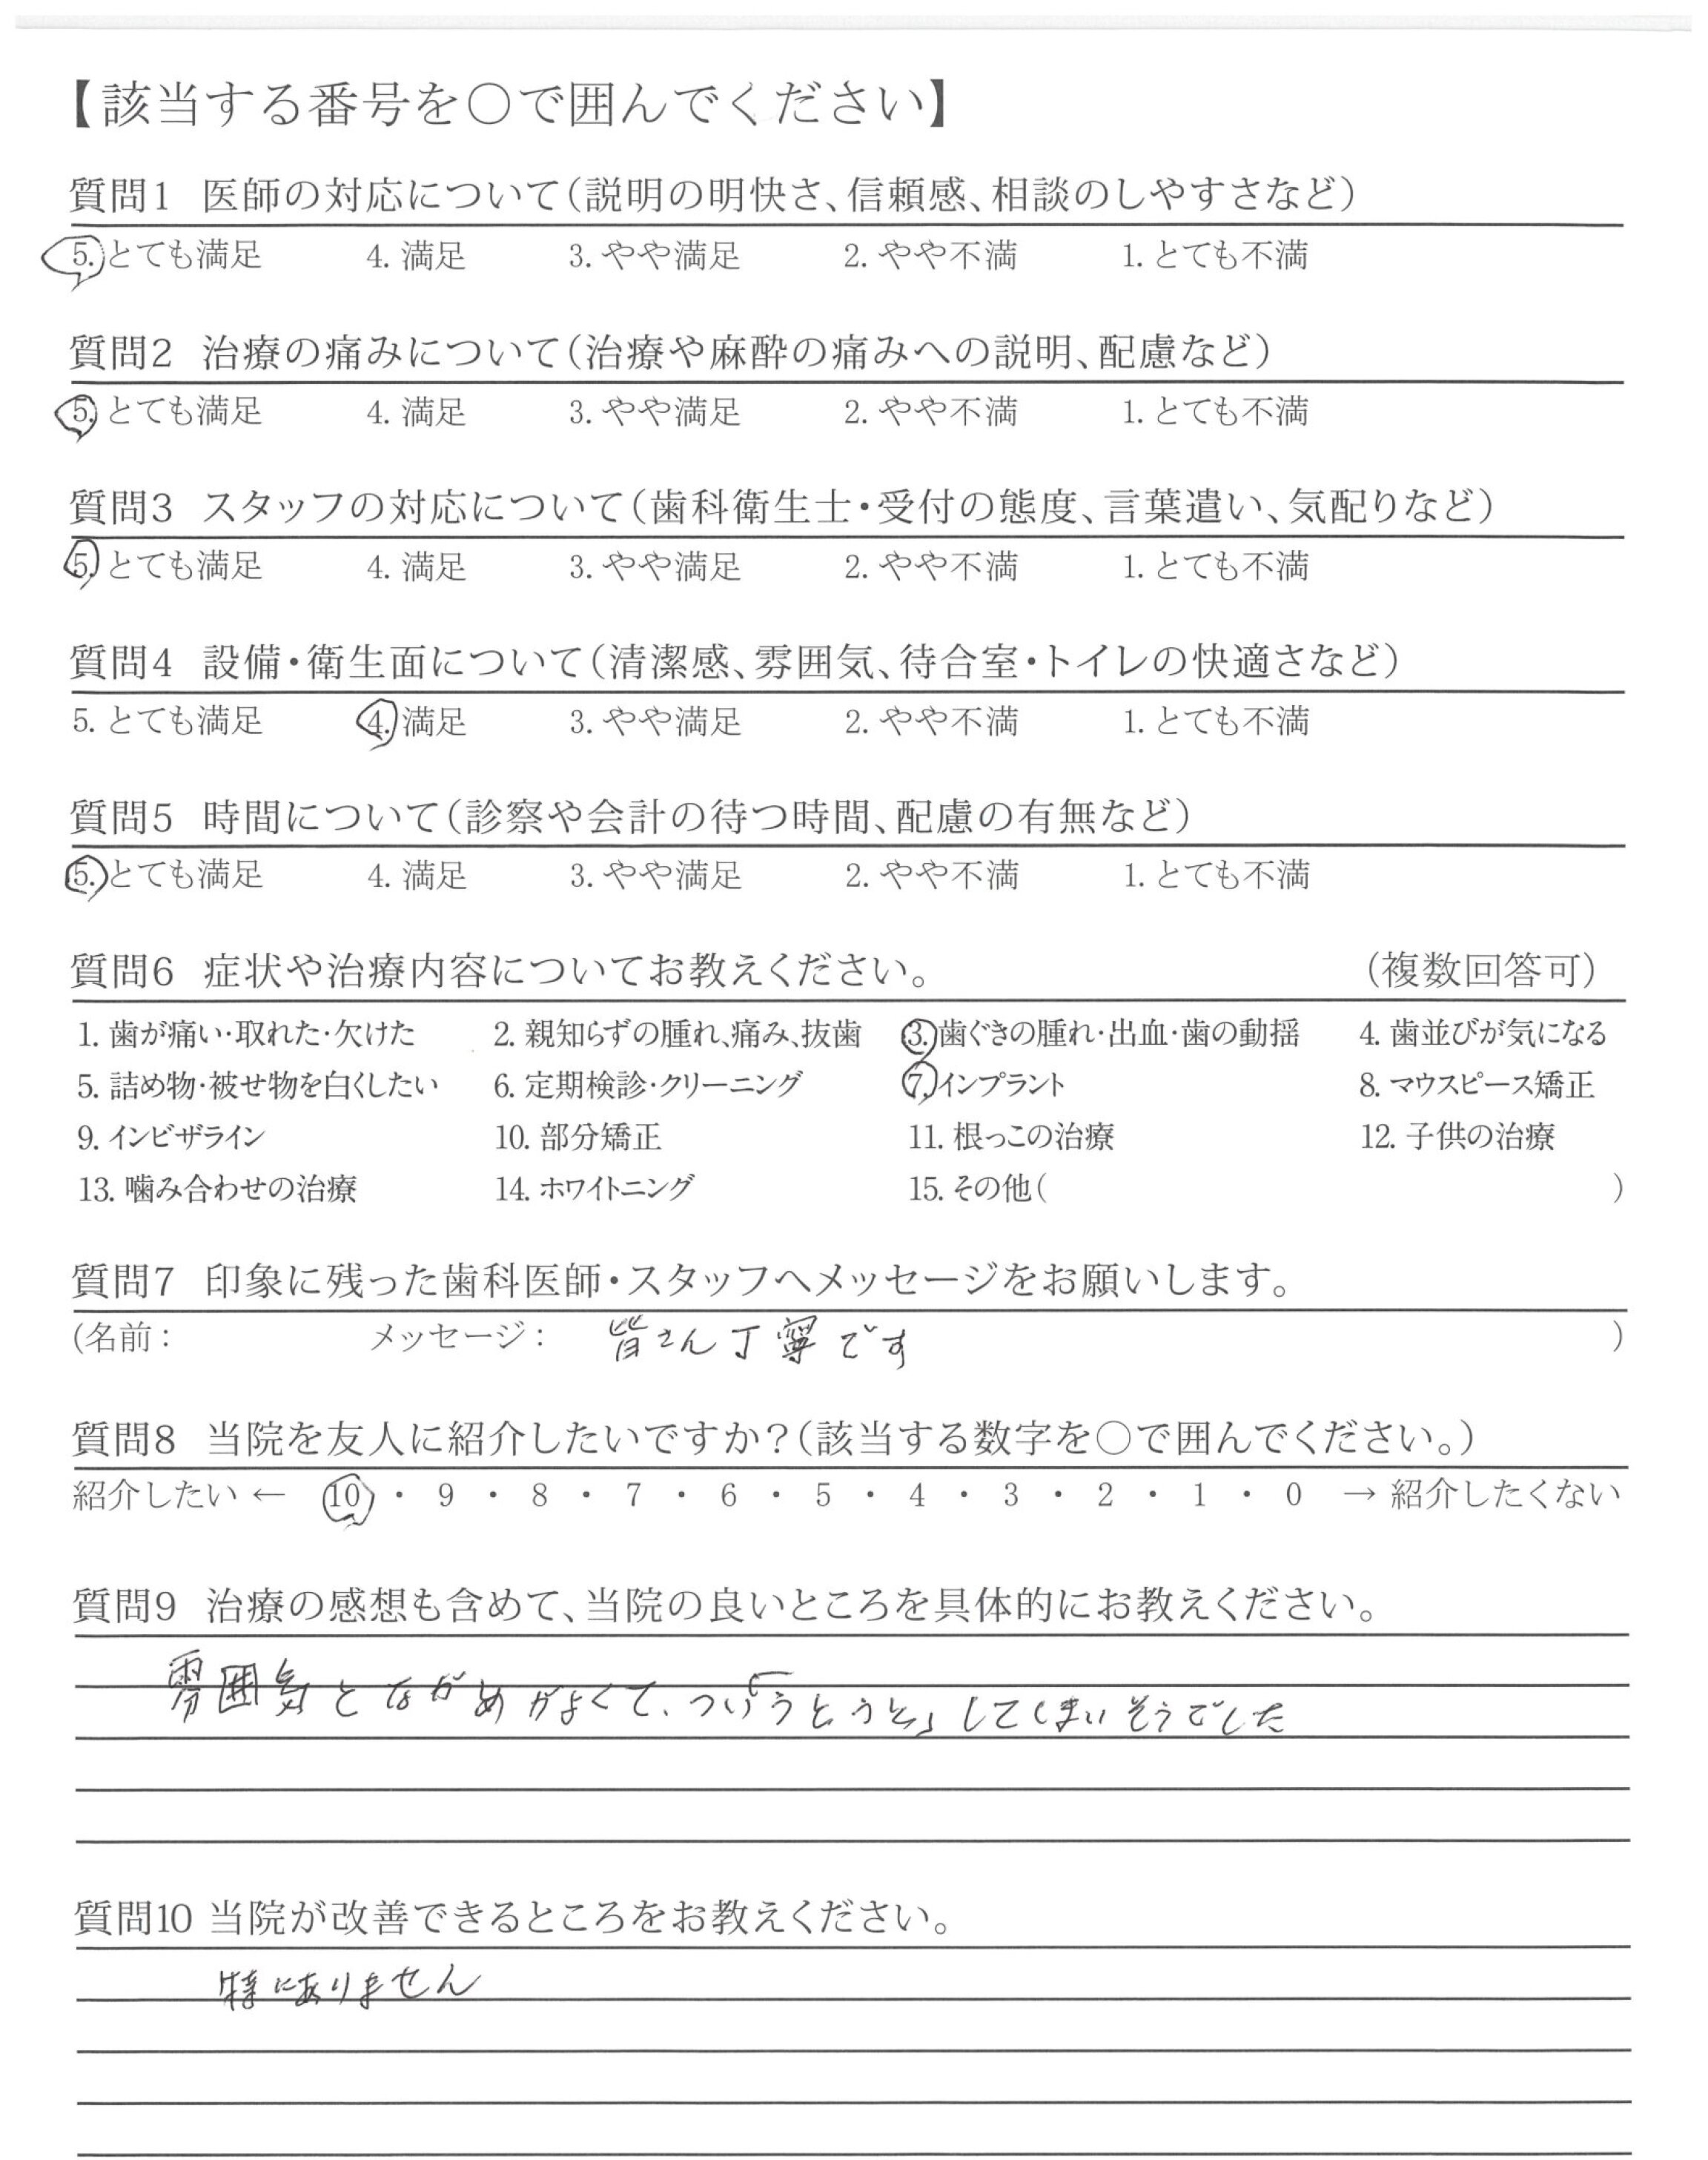 【該当する番号を○で囲んでください】
質問1 医師の対応について(説明の明快さ、信頼感、相談のしやすさなど)
5. とても満足 4. 満足 3. やや満足 2. やや不満 1. とても不満
質問2 治療の痛みについて(治療や麻酔の痛みへの説明、配慮など)
5. とても満足 4. 満足 3. やや満足 2. やや不満 1. とても不満
質問3 スタッフの対応について(歯科衛生士・受付の態度、言葉遣い、気配りなど)
5. とても満足 4. 満足 3. やや満足 2. やや不満 1. とても不満
質問4 設備・衛生面について(清潔感、雰囲気、待合室・トイレの快適さなど)
5. とても満足 4. 満足 3. やや満足 2. やや不満 1. とても不満
質問5 時間について(診察や会計の待つ時間、配慮の有無など)
5. とても満足 4. 満足 3. やや満足 2. やや不満 1. とても不満
質問6 症状や治療内容についてお教えください。 (複数回答可)
1. 歯が痛い・取れた・欠けた 2. 親知らずの腫れ、痛み、抜歯 3. 歯ぐきの腫れ・出血・歯の動揺 4. 歯並びが気になる
5. 詰め物・被せ物を白くしたい 6. 定期検診・クリーニング 7. インプラント 8. マウスピース矯正
9. インビザライン 10. 部分矯正 11. 根っこの治療 12. 子供の治療
13. 噛み合わせの治療 14. ホワイトニング 15. その他( )
質問7 印象に残った歯科医師・スタッフへメッセージをお願いします。
(名前： メッセージ： 皆さん丁寧です )
質問8 当院を友人に紹介したいですか?(該当する数字を○で囲んでください。)
紹介したい ← 10 ・ 9 ・ 8 ・ 7 ・ 6 ・ 5 ・ 4 ・ 3 ・ 2 ・ 1 ・ 0 → 紹介したくない
質問9 治療の感想も含めて、当院の良いところを具体的にお教えください。
雰囲気とながめがよくて、つい「うとうと」してしまいそうでした
質問10 当院が改善できるところをお教えください。
特にありません